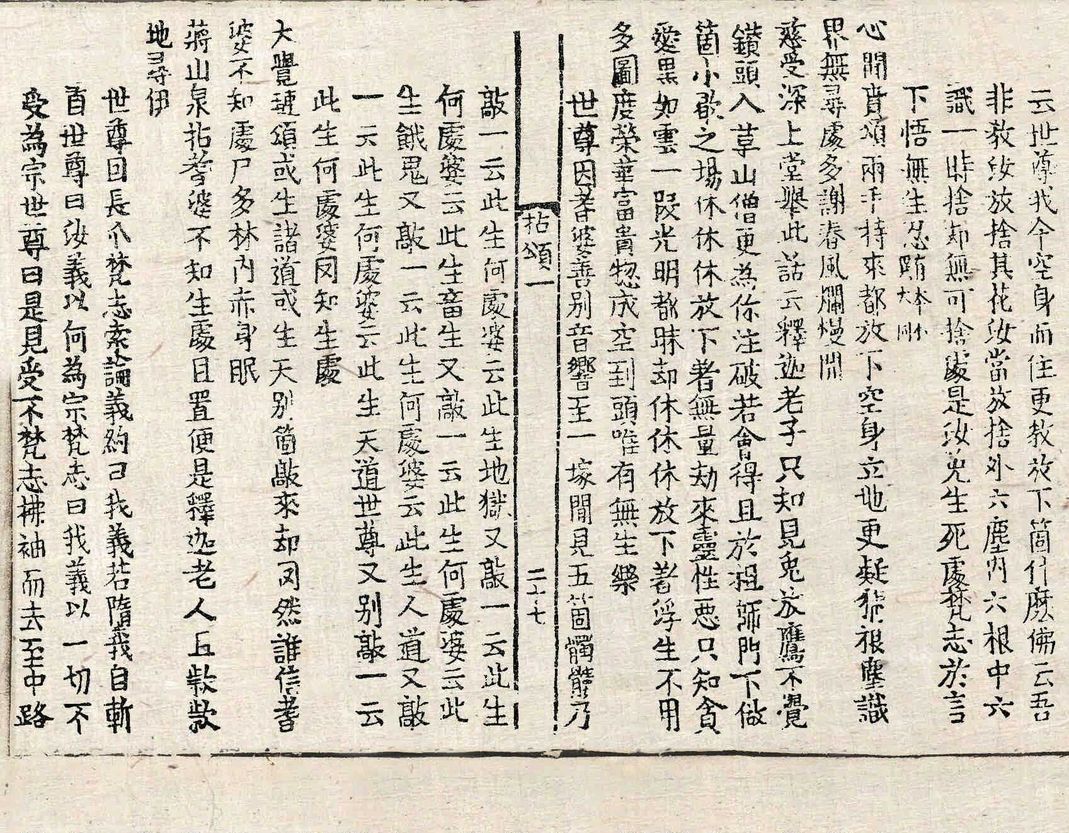 云世尊我今空身而住更教放下箇什麽佛云吾
非教汝放捨其花汝當放捨外六塵内六根中六
識一時捨却無可捨處是汝免生死處梵志於言
下悟無生忍
心聞賁頌兩手持來都放下空身立地更疑猜根塵識
界無尋處多謝春風爛熳開
慈受深上堂舉此話云釋迦老子只知見兔放鷹不覺
鑚頭入草山僧更為你注破若會得且於祖師門下做
箇小歇之場休休休放下著無量劫來靈性惡只知貪
愛黒如雲一段光明都昧却休休休放下著浮生不用
多圖度榮華富貴惣成空到頭唯有無生樂
世尊因耆婆善別音響至一塚間見五箇髑髏乃
拈頌一
二十七
敲一云此生何處婆云此生地獄又敲一云此生
何處婆云此生畜生又敲一云此生何處婆云此
生餓鬼又敲一云此生何處婆云此生人道又敲
一云此生何處婆云此生天道世尊又別敲一云
此生何處婆罔知生處
大覺璉頌或生諸道或生天別箇敲來却罔然誰信耆
婆不知處尸多林内赤身眠
蔣山泉拈耆婆不知生處且置便是釋迦老人五欵欵
地尋伊
世尊因長爪梵志索論義約曰我義若隋我自斬
首世尊曰汝義以何為宗梵志曰我義以一切不
受為宗世尊曰是見受不梵志拂袖而去至中路